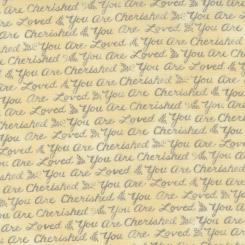 Are Cherished You Are Loved You
You Are Loved You Are Cherished
Are Cherished You Are Loved You Are
You Are Loved You Are Cherished
Are Cherished You Are Loved You Are
You Are Loved You Are Cherished
Are Cherished You Are Loved You Are
You Are Loved You Are Cherished
Are Cherished You Are Loved You Are
You Are Loved You Are Cherished
Are Cherished You Are Loved You Are
You Are Loved You Are Cherished
Are Cherished You Are Loved You Are
You Are Loved You Are Cherished
Are Cherished You Are Loved